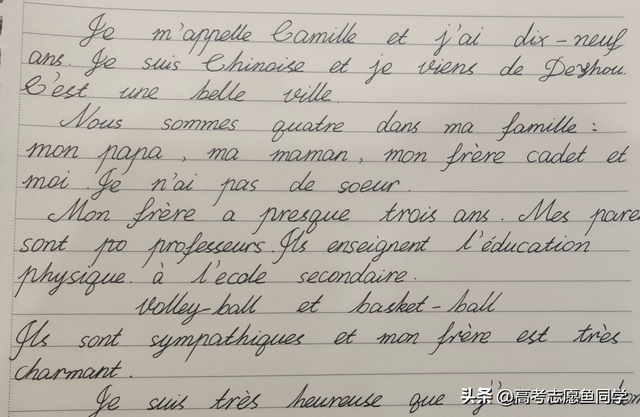 Je m'appelle Camille et j'ai dix-neuf
ans. Je suis Chinoise et je viens de Dezhou.
C'est une belle ville.
Nous sommes quatre dans ma famille :
mon papa, ma maman, mon frère cadet et
moi. Je n'ai pas de soeur.
Mon frère a presque trois ans. Mes pare
sont po professeurs. Ils enseignent l'éducation
physique. à l'ecole secondaire.
volley-ball et basket-ball
Ils sont sympathiques et mon frère est très
charmant.
Je suis très heureuse que j'
头条 @高考志愿鱼同学